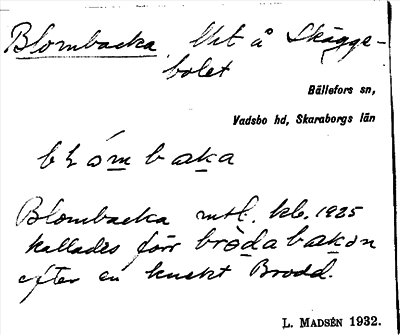 Blombacka, Uht å Skägge-
bolet
Bällefors sn,
Vadsbo hd, Skaraborgs län
blòmbaka
Blombacka mtl. kb. 1925
kallades förr brödabakan
efter en knekt Brodd.
L. MADSÉN 1932.